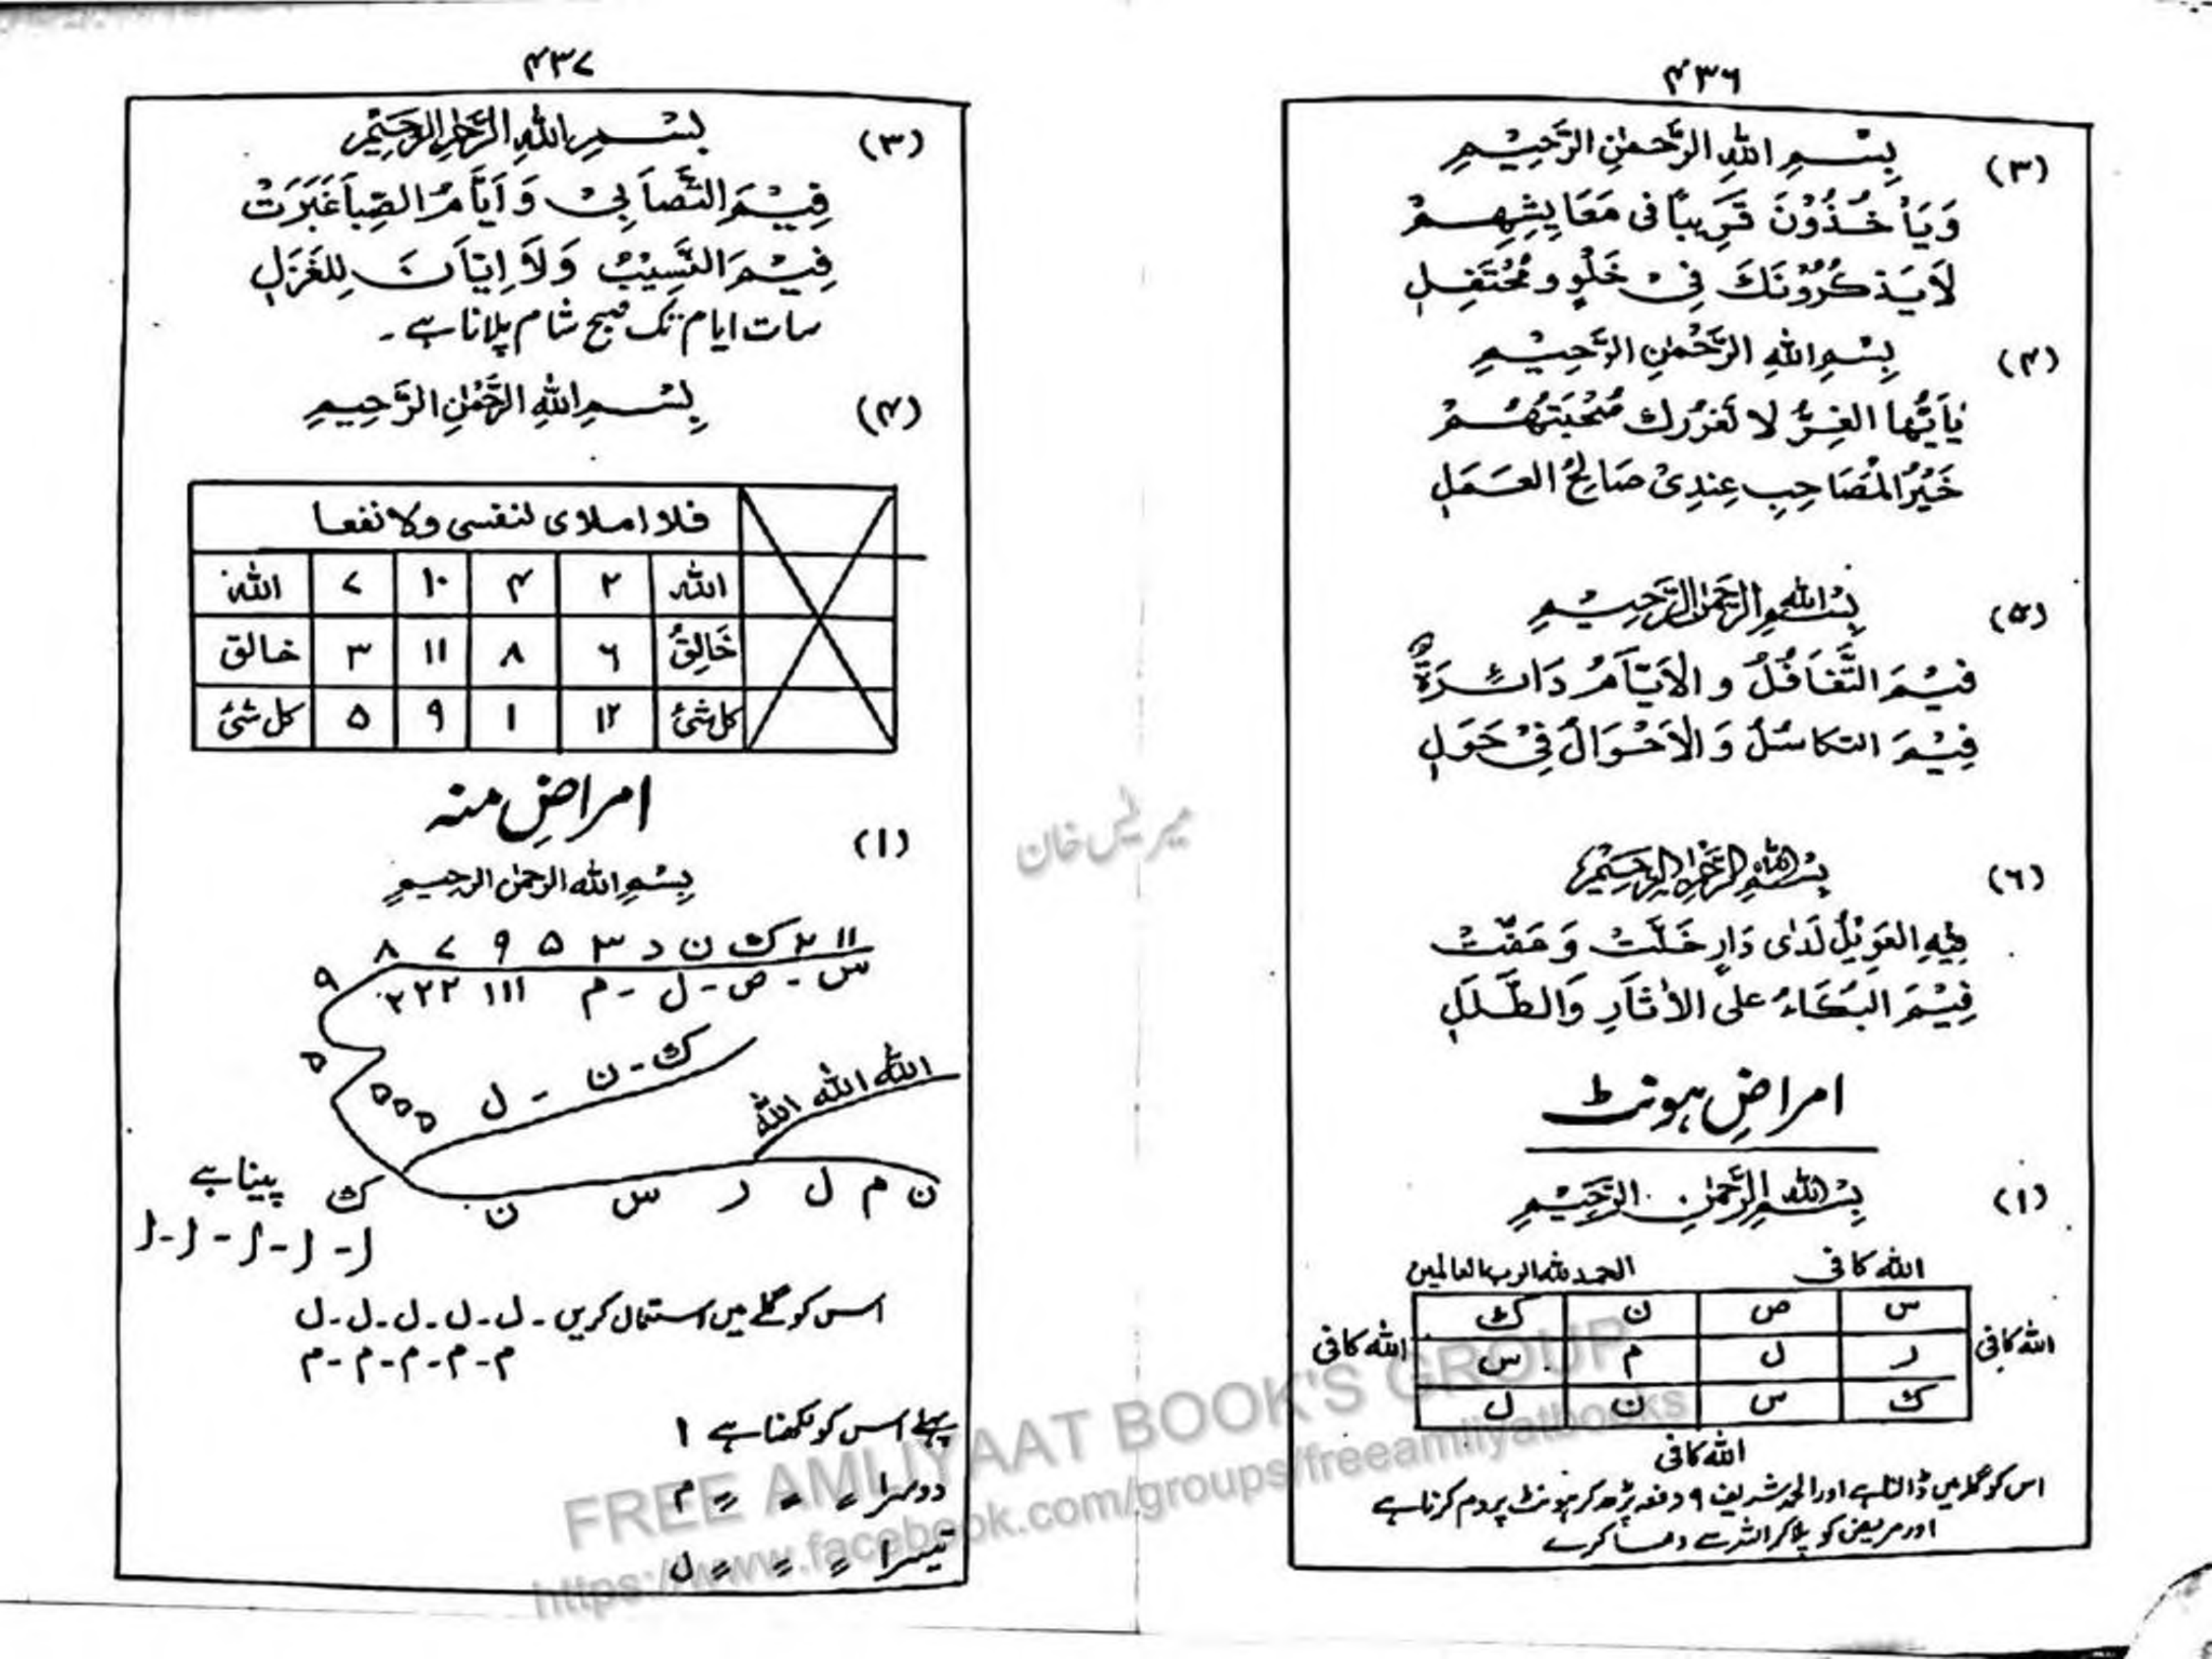 ۴۳۶
(۳) بِسْمِ اللهِ الرَّحْمٰنِ الرَّحِيْمِ
وَيَأْخُذُوْنَ قَرِيباً فى مَعَايِشِهِمْ
لَا يَذْكُرُوْنَكَ فِىْ خَلْوٍ و مُحْتَفِلِ
(۴) بِسْمِ اللهِ الرَّحْمٰنِ الرَّحِيْمِ
يٰاَيُّها الغِرُّ لا تَغرُرك صُحْبَتهُمْ
خَيْرُ المُصَاحِبِ عِنْدِىْ صَالِحُ العَمَلِ
(۵) بِسْمِ اللهِ الرَّحْمٰنِ الرَّحِيْمِ
فِيْمَ التَّغَافُلُ و الاَيَّامُ دَائِرَةٌ
فِيْمَ التكاسُلُ وَالْاَحْوَالُ فِىْ حَوَلِ
(۶) بِسْمِ اللهِ الرَّحْمٰنِ الرَّحِيْمِ
فِيْمَ العَوِيْلُ لَدٰى دَارٍ خَلَتْ وَ عَفَتْ
فِيْمَ البُكَاءُ على الاٰثَارِ وَالطَّلَلِ
امراضِ ہونٹ
(۱) بِسْمِ اللهِ الرَّحْمٰنِ الرَّحِيْمِ
الله كافى الحمد لله الرب العالمين
س ص ن ك
الله كافى ر ل م س الله كافى
ك س ن ل
الله كافى
اس کو گلے میں ڈالنا ہے اور الحمد شریف ۹ دفعہ پڑھ کر ہونٹ پر دم کرنا ہے
اور مریض کو پلا کر اللہ سے دعا کرے
۴۳۷
(۳) بِسْمِ اللهِ الرَّحْمٰنِ الرَّحِيْمِ
فِيْمَ التَّصَابِىْ وَ اَيَّامُ الصِّبَا غَبَرَتْ
فِيْمَ النَّسِيْبُ وَلَا اِيَّانَ لِلغَزَلِ
سات ایام تک صبح شام پلانا ہے ۔
(۴) بِسْمِ اللهِ الرَّحْمٰنِ الرَّحِيمِ
فلا املاى لنفسى ولا نفعا
الله ۲ ۴ ۱۰ ۷ الله
خَالِقُ ۶ ۸ ۱۱ ۳ خالق
كل شئ ۱۲ ۱ ۹ ۵ كل شئ
امراضِ منہ
(۱)
بِسْمِ الله الرحمٰن الرحيمِ
۱۱ ۲ ك ن د ۳ ۵ ۹ ۷ ۸
۹
س - ص - ل - م ۱۱۱ ۲۲۲
ك - ن - ل
۵
۵۵۵
الله الله الله
ن م ل ر س ن ك
پینا ہے
ل - ل - ل - ل - ل
اس کو گلے میں استعمال کریں - ل - ل - ل - ل - ل
م - م - م - م - م
پہلے اس کو لکھنا ہے ۱
دوسرا = = = م
تیسرا = = = ل
میر ٹیس خان
FREE AMLIYAAT BOOK'S GROUP
https://www.facebook.com/groups/freeamliyatbooks